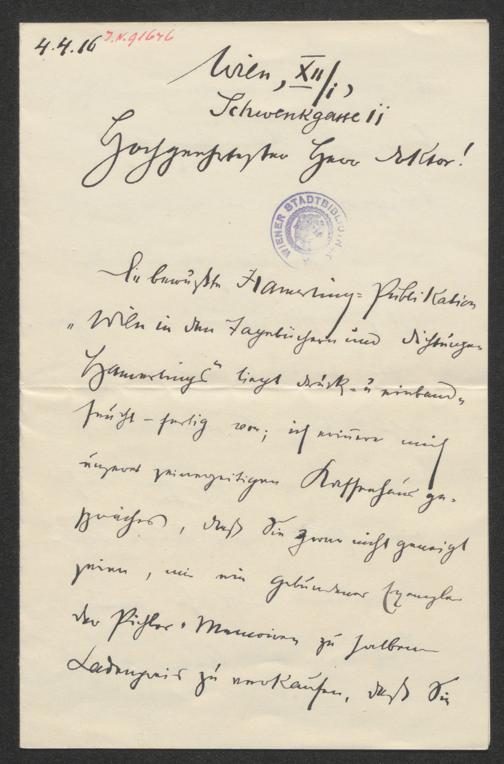 4.4.16 J.N. 91646
Wien, XII/1,
Schwenkgasse 11
Hochgeehrtester Herr Doktor!
WIENER STADTBIBLIOTHEK
Die bewußte Hamerling-Publikation
„Wien in den Tagebüchern und Dichtungen
Hamerlings“ liegt druck- u einband-
feucht-fertig vor; ich erinnere mich
unseres seinerzeitigen Kaffeehausge-
spräches, daß Sie zwar nicht geneigt
seien, mir ein gebundenes Exemplar
der Pichler-Memoiren zu halbem
Ladenpreis zu verkaufen, daß Sie